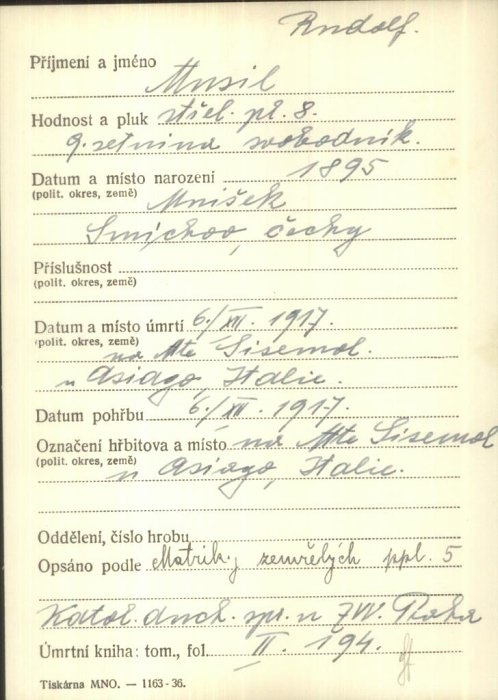 Rudolf.
Příjmení a jméno Musil
Hodnost a pluk střel. pl. 8.
9. setnina svobodník.
Datum a místo narození 1895
(polit. okres, země) Mníšek
Smíchov, Čechy
Příslušnost
(polit. okres, země)
Datum a místo úmrtí 6./XII. 1917.
(polit. okres, země) na Mte Sisemol.
u Asiago, Italie.
Datum pohřbu 6./XII. 1917.
Označení hřbitova a místo na Mte Sisemol
(polit. okres, země) u Asiago, Italie.
Oddělení, číslo hrobu
Opsáno podle Matriky zemřelých ppl. 5
Katol. duch. spr. u ZVV. Praha
Úmrtní kniha: tom., fol. II. 194.
Tiskárna MNO. — 1163-36.